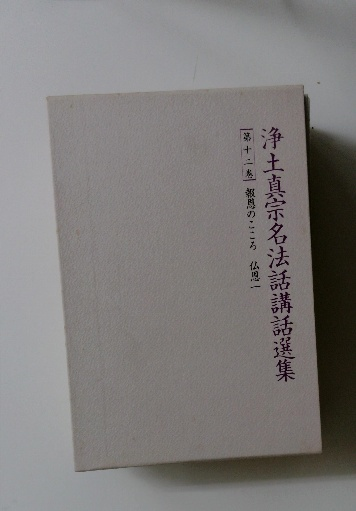 浄土真宗名法話講話選集
第十二巻 報恩のこころ 仏恩一